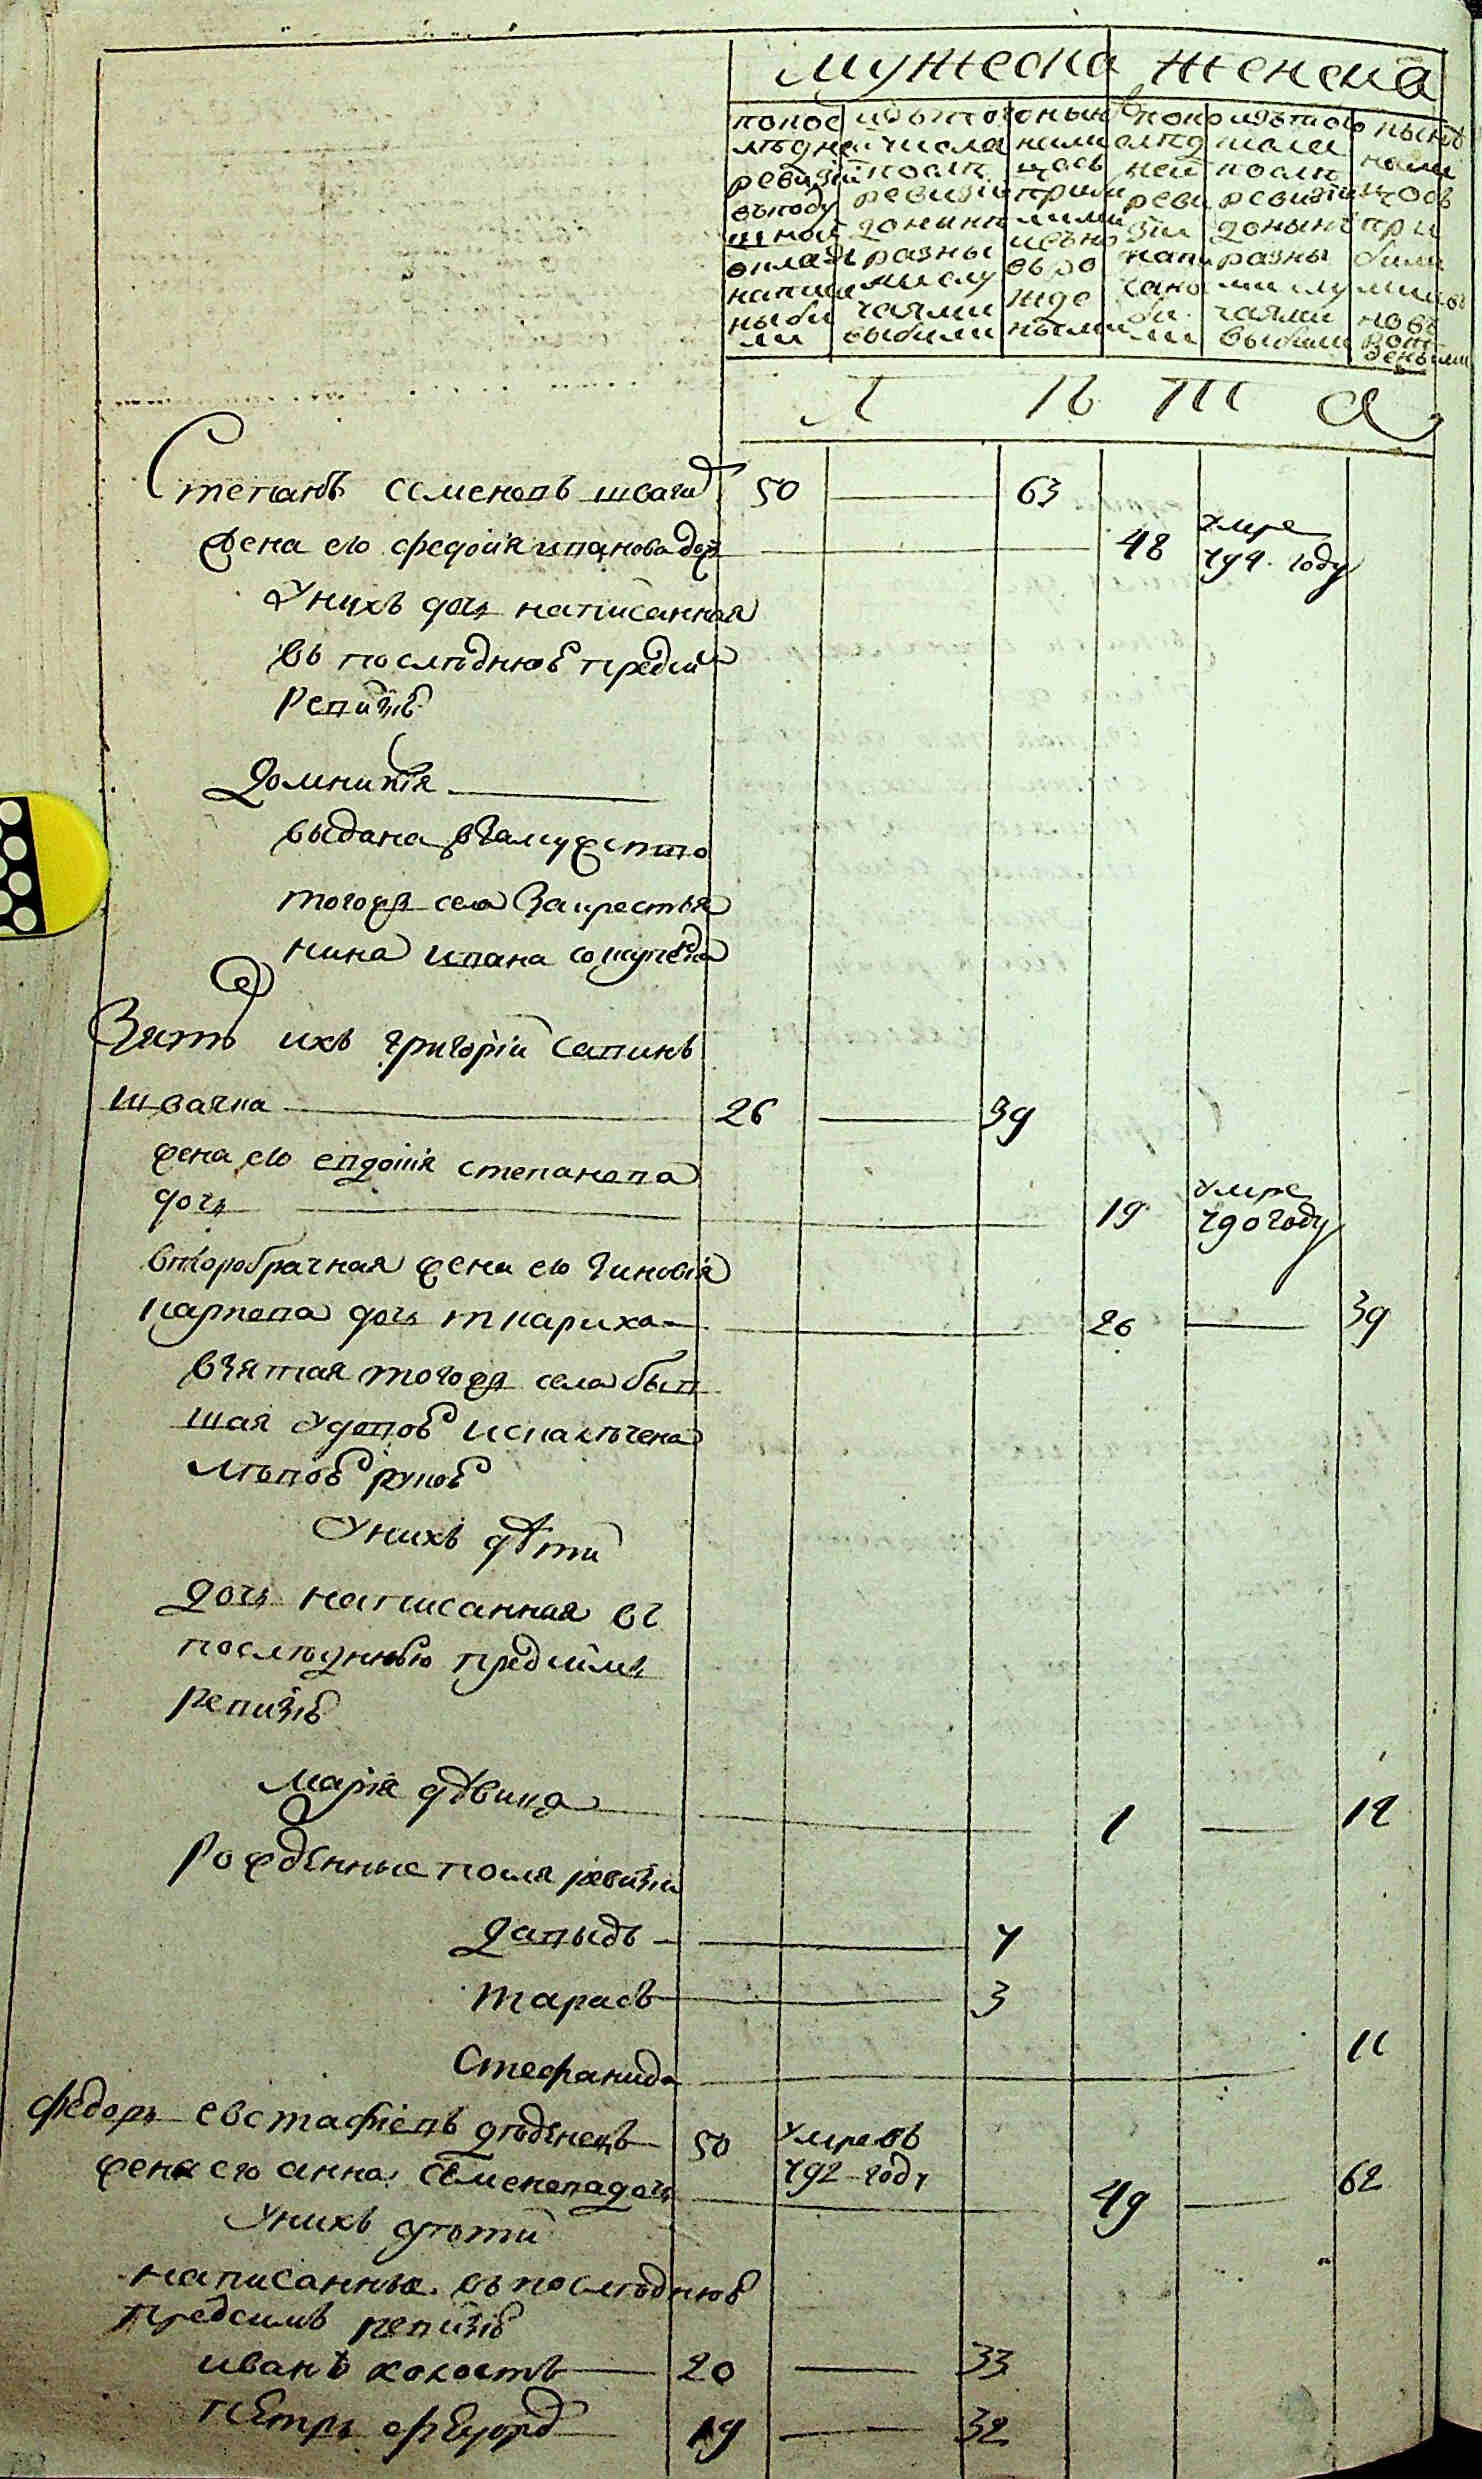 мужеска женска
попос
лѣдней
ревизіи
въподу
шной
окладъ
написа
ны бы
ли
изътого
числа
посли
ревизіи
донынѣ
разны
ми слу
чаями
выбыли
нынѣ
нали
цось
прибы
лими
исъно
въ ро
жде
ными
попо
слѣд
ней
реви
зіи
напи
сано
бы
ли
изътого
числа
посли
ревизіи
донынѣ
разны
ми слу
чаями
выбыли
нынѣ
нали
цось
при
были
ми
новъ
рож
деными
л ѣ т а
Степанъ Семеновъ швачка 50 63
жена его Федосія иванова дочь 48 умре 794. году
У нихъ дочь написанная
въ последнюю предсимъ
Ревизію
Домникія
выдана в замужство
тогожъ села За крестья
нина ивана
Зять ихъ григорій Савинъ
швачка 26 39
жена его евдокія степанова
дочь 19 умре 790 году
второбрачная жена его Зиновія
карпова дочь ткариха 26 39
взятая тогожъ села быв
шая удовою искалѣчена
лѣвою рукою
У нихъ дѣти
дочь написанная въ
последнюю предсимъ
Ревизію
Марія дѣвица 1 14
Рожденные посля ревизіи
давыдъ 7
тарасъ 3
Стефанида 11
Федоръ Евстафіевъ 50 умре въ 792 году
жена его анна Семенова дочь 49 62
У нихъ дѣти
написанные въ последнюю
предсимъ ревизію
иванъ холостъ 20 33
Петръ 19 32